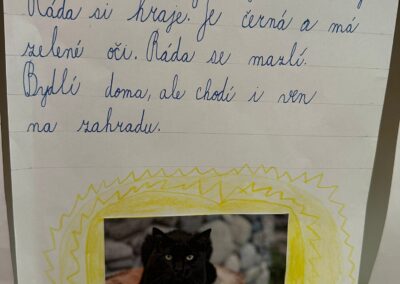 Ráda si hraje. Je černá a má
zelené oči. Ráda se mazlí.
Bydlí doma, ale chodí i ven
na zahradu.